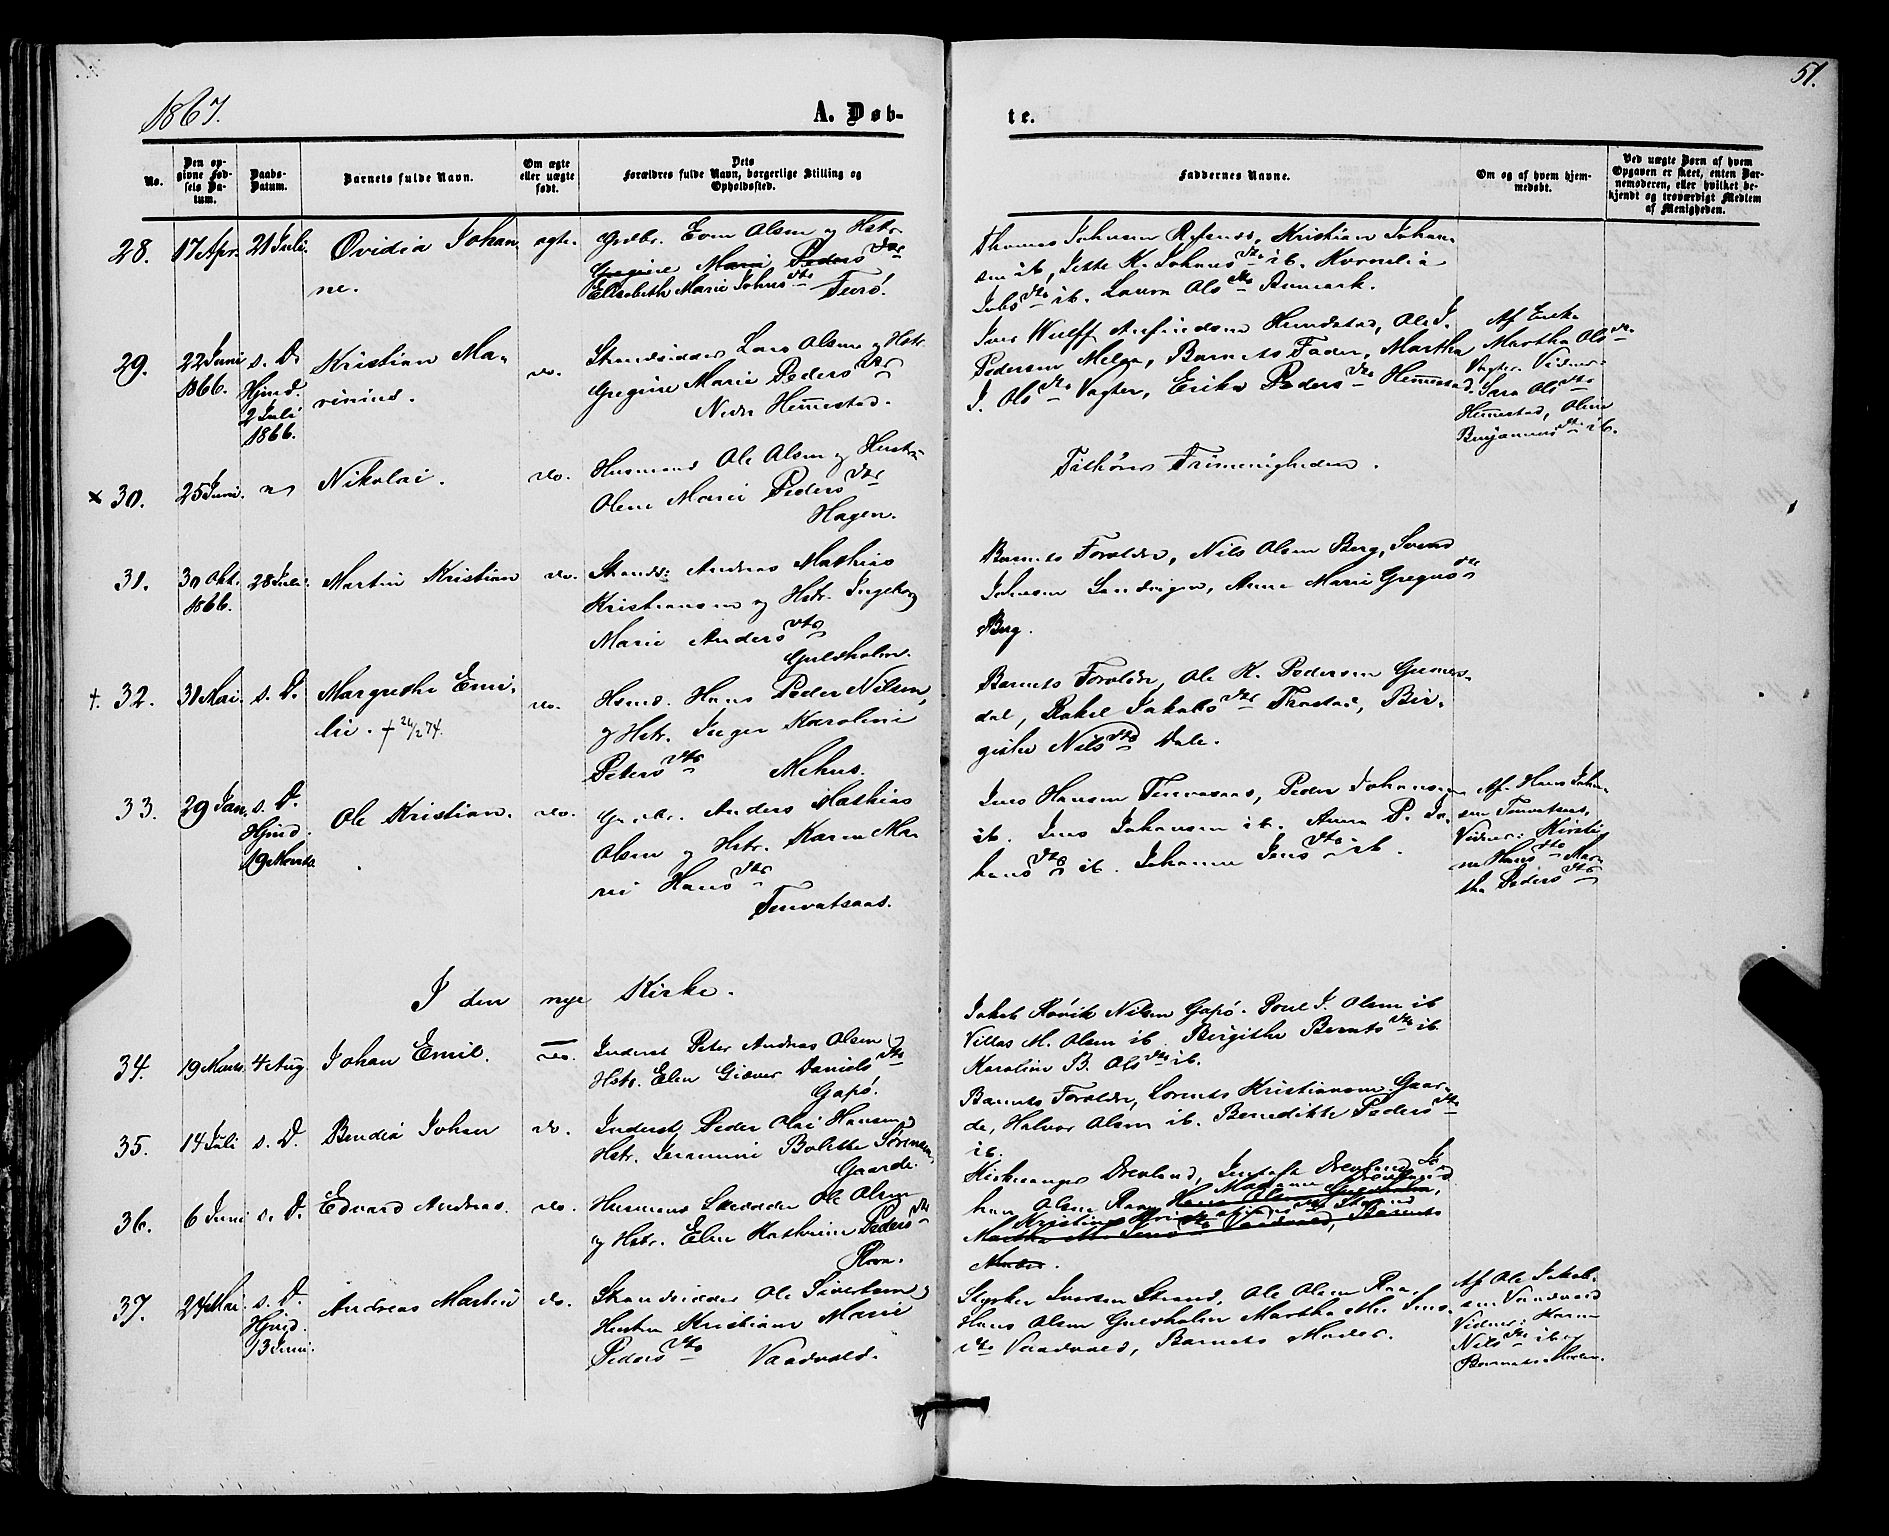 1867.
A. Døb-
te.
51.
No.
Den op-
givne Fød-
sels Da-
tum.
Daabs-
Datum.
Barnets fulde Navn.
Om ægte
eller uægte
født.
Dets
Forældres fulde Navn, borgerlige Stilling og
Opholdssted.
Faddernes Navne.
Om og af hvem hjem-
medøbt.
Ved uægte Børn af hvem
Opgaven er skeet, enten Bar-
nemoderen, eller hvilket be-
kjendt og troværdigt Medlem
af Menigheden.
28.
17 Apr.
21 Juli.
Ovidia Johan
ne.
ægte.
Grdbr. Even Olsen og Hstr.
Gregine Marie Peders dtr
Elisabeth Marie Johns dtr
Furö.
Thomas Johnsen Refsnes, Kristian Johan-
sen ib, Jette K. Johans dtr ib. Kornelia
Jobs dtr ib. Laura Ols dtr
29.
22 Juni
1866.
s. D.
Hjmd.
2 Juli
1866.
Kristian Ma-
rinius.
do.
Strandsidder Lars Olsen og Hstr.
Gregine Marie Peders dtr
Nedre Hemmestad.
Jens Wulff Hemmestad, Ole J.
Pedersen Melaa, Barnets Fader, Martha
J. Ols dtr Vagter, Erika Peders dtr Hemmestad.
Af Erika
Martha Ols dtr
Vagter. Vidner:
Sara Ols dtr
Hemmestad, Oline
Benjamins dtr ib.
× 30.
25 Juni.
Nikolai.
do.
Husmand Ole Olsen og Hustru
Olene Marie Peders dtr
Hagen.
Tilhører Frimenigheden.
31.
30 Okt.
1866.
28 Juli.
Martin Kristian
do.
Strands: Andreas Mathias
Kristiansen og Hstr. Ingeborg
Marie Anders dtr
Guldholm.
Barnets Forældre, Nils Olsen Berg, Svend
Johnsen Sandvigen, Anne Marie Gregus dtr
Berg.
† 32.
31 Mai.
s. D.
Margrethe Emi-
lie. † 26/2 74.
do.
Hsmd. Hans Peder Nilsen,
og Hstr. Inger Karoline
Peters dtr
Mehus.
Barnets Forældre, Ole K. Pedersen Gunnes-
dal, Rakel Jakobs dtr Trastad, Bir-
githe Nils dtr Dale.
33.
29 Jan.
s. D.
Hjmd.
19 Marts
Ole Kristian.
do.
Grdbr. Anders Mathias
Olsen og Hstr. Karen Ma-
rie Hans dtr
Tenvatsaas.
Jens Hansen Tenvasaas, Peder Johansen
ib. Jens Johansen ib. Anna P. Jo-
hans dtr ib. Johanna Jens dtr ib.
Af Hans Johan-
sen Tenvatsaas,
Vidner: Kirsti-
ne Hans dtr Mar-
tha Peders dtr
I den nye Kirke.
34.
19 Marts.
4 Aug.
Johan Emil.
do.
Inderst Peter Andreas Olsen og
Hstr. Elen Giæver Daniels dtr
Gapö.
Jakob Røvik Nilsen Gapö. Poul J. Olsen ib
Villas M. Olsen ib. Birgithe Bernts dtr ib
Karoline B. Ols dtr ib.
35.
14 Juli
s. D.
Bendia Johan
do.
Inderst Peder Olai Hansen og
Hstr. Jeramine Bolette Sörensen,
Gaarde.
Barnets Forældre, Lorents Kristiansen Gaar-
de, Halvor Olsen ib. Benedikte Peders dtr
ib.
36.
6 Juni
s. D.
Edvard Andreas.
do.
Husmand Skrædder Ole Olsen
og Hstr. Elen Kathrine Peders dtr
Raa.
Kirkesanger Drevland, Jomfr. Drevland, Jo-
han Olsen Raa, Hans Olsen Guldholm,
Madame Drevland
Martha M. Jens dtr Vaadvold, Barnets
Moder.
37.
24 Mai.
s. D.
Hjmd.
13 Juni.
Andreas Martin
do.
Strandsidder Ole Sivertsen og
Hustru Kristiane Marie
Peders dtr
Vaadvold.
Styrker Iversen Strand, Ole Olsen Raa.
Hans Olsen Guldholm Martha M. Jens-
dtr Vaadvold, Barnets Moder.
Af Ole Jakob-
sen Vaadvold
Vidner: Karen
Nils dtr ib og
Barnets Moder.